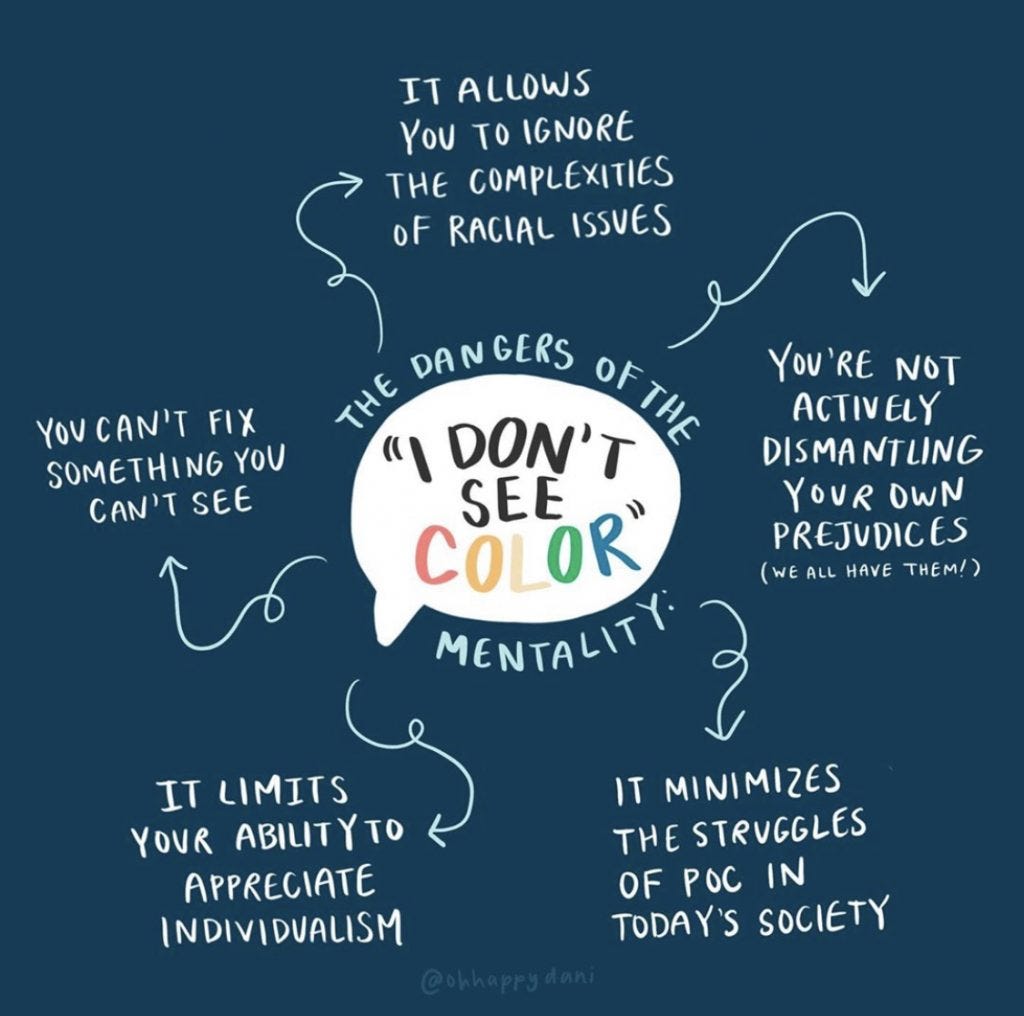 IT ALLOWS
YOU TO IGNORE
THE COMPLEXITIES
OF RACIAL ISSUES
THE DANGERS OF THE
"I DON'T
SEE
COLOR"
MENTALITY:
YOU'RE NOT
ACTIVELY
DISMANTLING
YOUR OWN
PREJUDICES
(WE ALL HAVE THEM!)
YOU CAN'T FIX
SOMETHING YOU
CAN'T SEE
IT LIMITS
YOUR ABILITY TO
APPRECIATE
INDIVIDUALISM
IT MINIMIZES
THE STRUGGLES
OF POC IN
TODAY'S SOCIETY
@ohhappydani